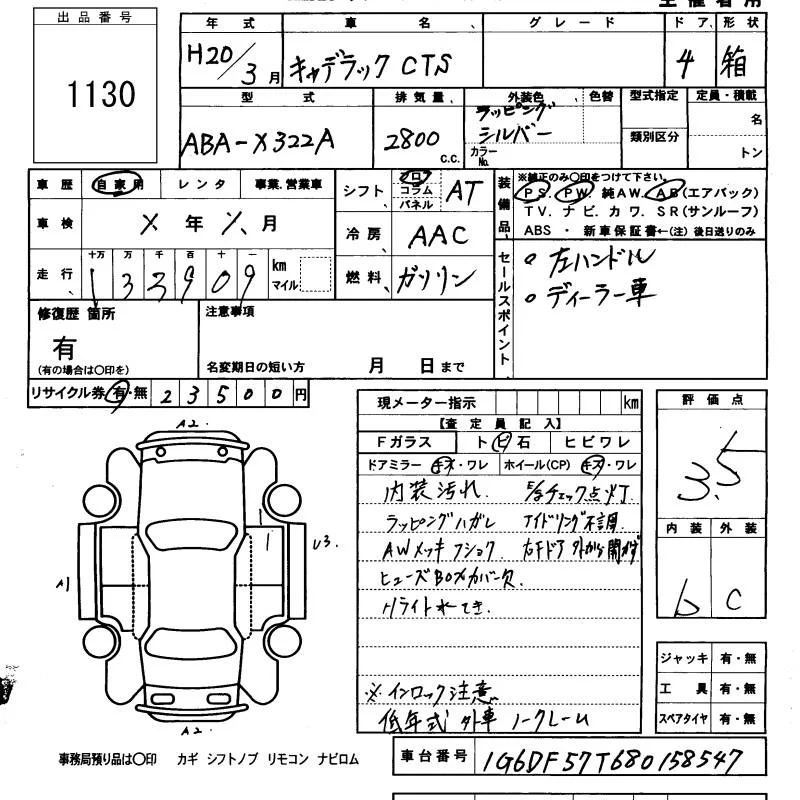 出品番号
1130
年式 車名、 グレード ドア、形状
H20/3月 キャデラック CTS 4 箱
型式 排気量、 外装色 色替 型式指定 定員・積載
ABA-X322A 2800 C.C. ラッピング シルバー カラーNo. 類別区分 名 トン
車歴 自家用 レンタ 事業.営業車
車検 X年 X、月
走行、 十万 万 千 百 十 一 km マイル
133909
シフト、 フロア コラム パネル AT
冷房 AAC
燃料、 ガソリン
装備品、 ※純正のみ〇印をつけて下さい。
PS. PW. 純AW. AB(エアバック)
TV. ナビ. カワ. SR(サンルーフ)
ABS ・ 新車保証書←(注)後日送りのみ
セールスポイント、
○ 左ハンドル
○ ディーラー車
修復歴 箇所
有
(有の場合は〇印を)
注意事項
名変期日の短い方 月 日まで
リサイクル券 有・無 23500円
現メーター指示 km
【査定員記入】
Fガラス トビ石 ヒビワレ
ドアミラー キズ・ワレ ホイール(CP) キズ・ワレ
内装汚れ. E/gチェック点灯
ラッピングハガレ アイドリング不調.
AWメッキフショク 右Fドア外から開かず
ヒューズBOXカバー欠.
※インロック注意
低年式 外車 ノークレーム
評価点
3.5
内装 外装
b C
ジャッキ 有・無
工具 有・無
スペアタイヤ 有・無
A2.
A1
U3.
A2.
事務局預り品は〇印 カギ シフトノブ リモコン ナビロム
車台番号 1G6DF57T680158547